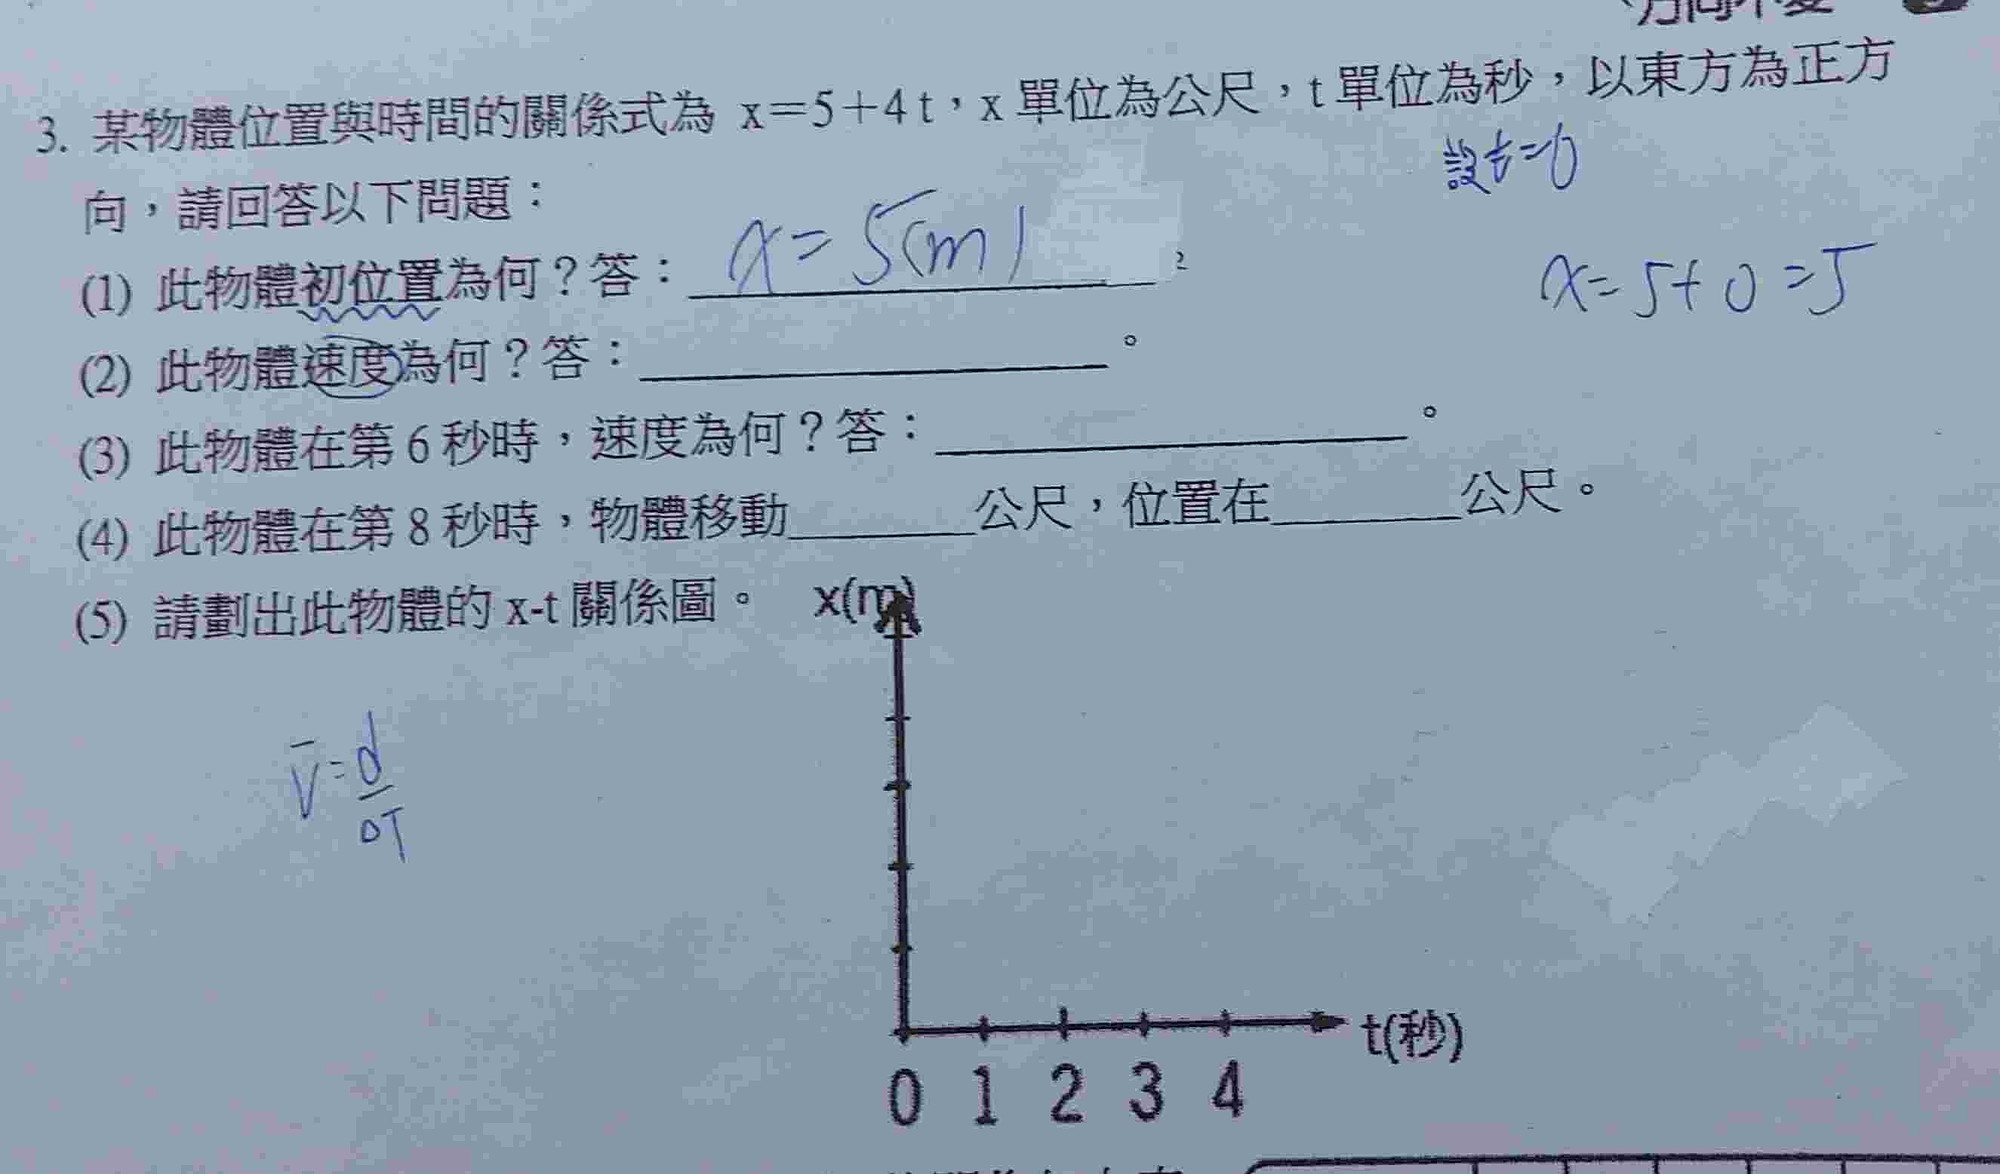 方向不變
3. 某物體位置與時間的關係式為 x=5+4t,x 單位為公尺,t 單位為秒,以東方為正方
設t=0
向,請回答以下問題:
x=5+0=5
(1) 此物體初位置為何?答:x=5(m)
(2) 此物體速度為何?答:________。
(3) 此物體在第 6 秒時,速度為何?答:________。
(4) 此物體在第 8 秒時,物體移動____公尺,位置在____公尺。
(5) 請劃出此物體的 x-t 關係圖。
x(m)
V̄=d/ΔT
t(秒)
0 1 2 3 4